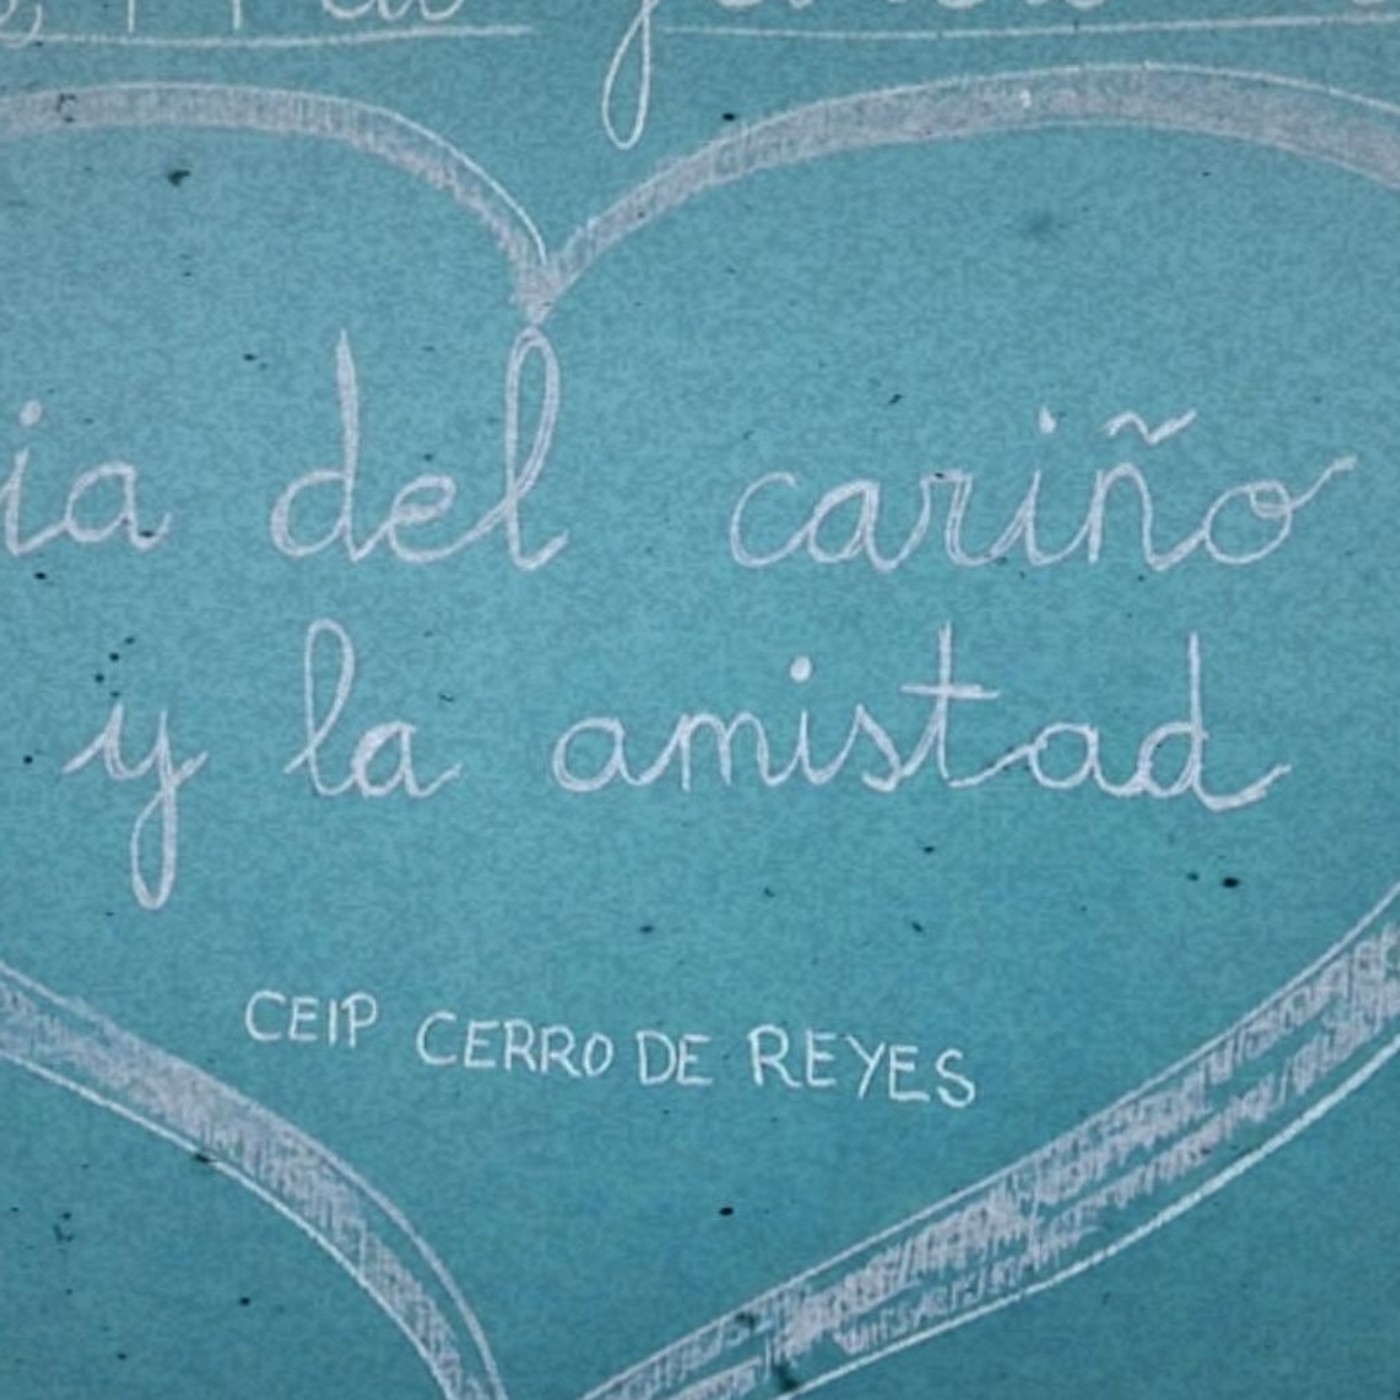 del cariño
y la amistad
CEIP CERRO DE REYES